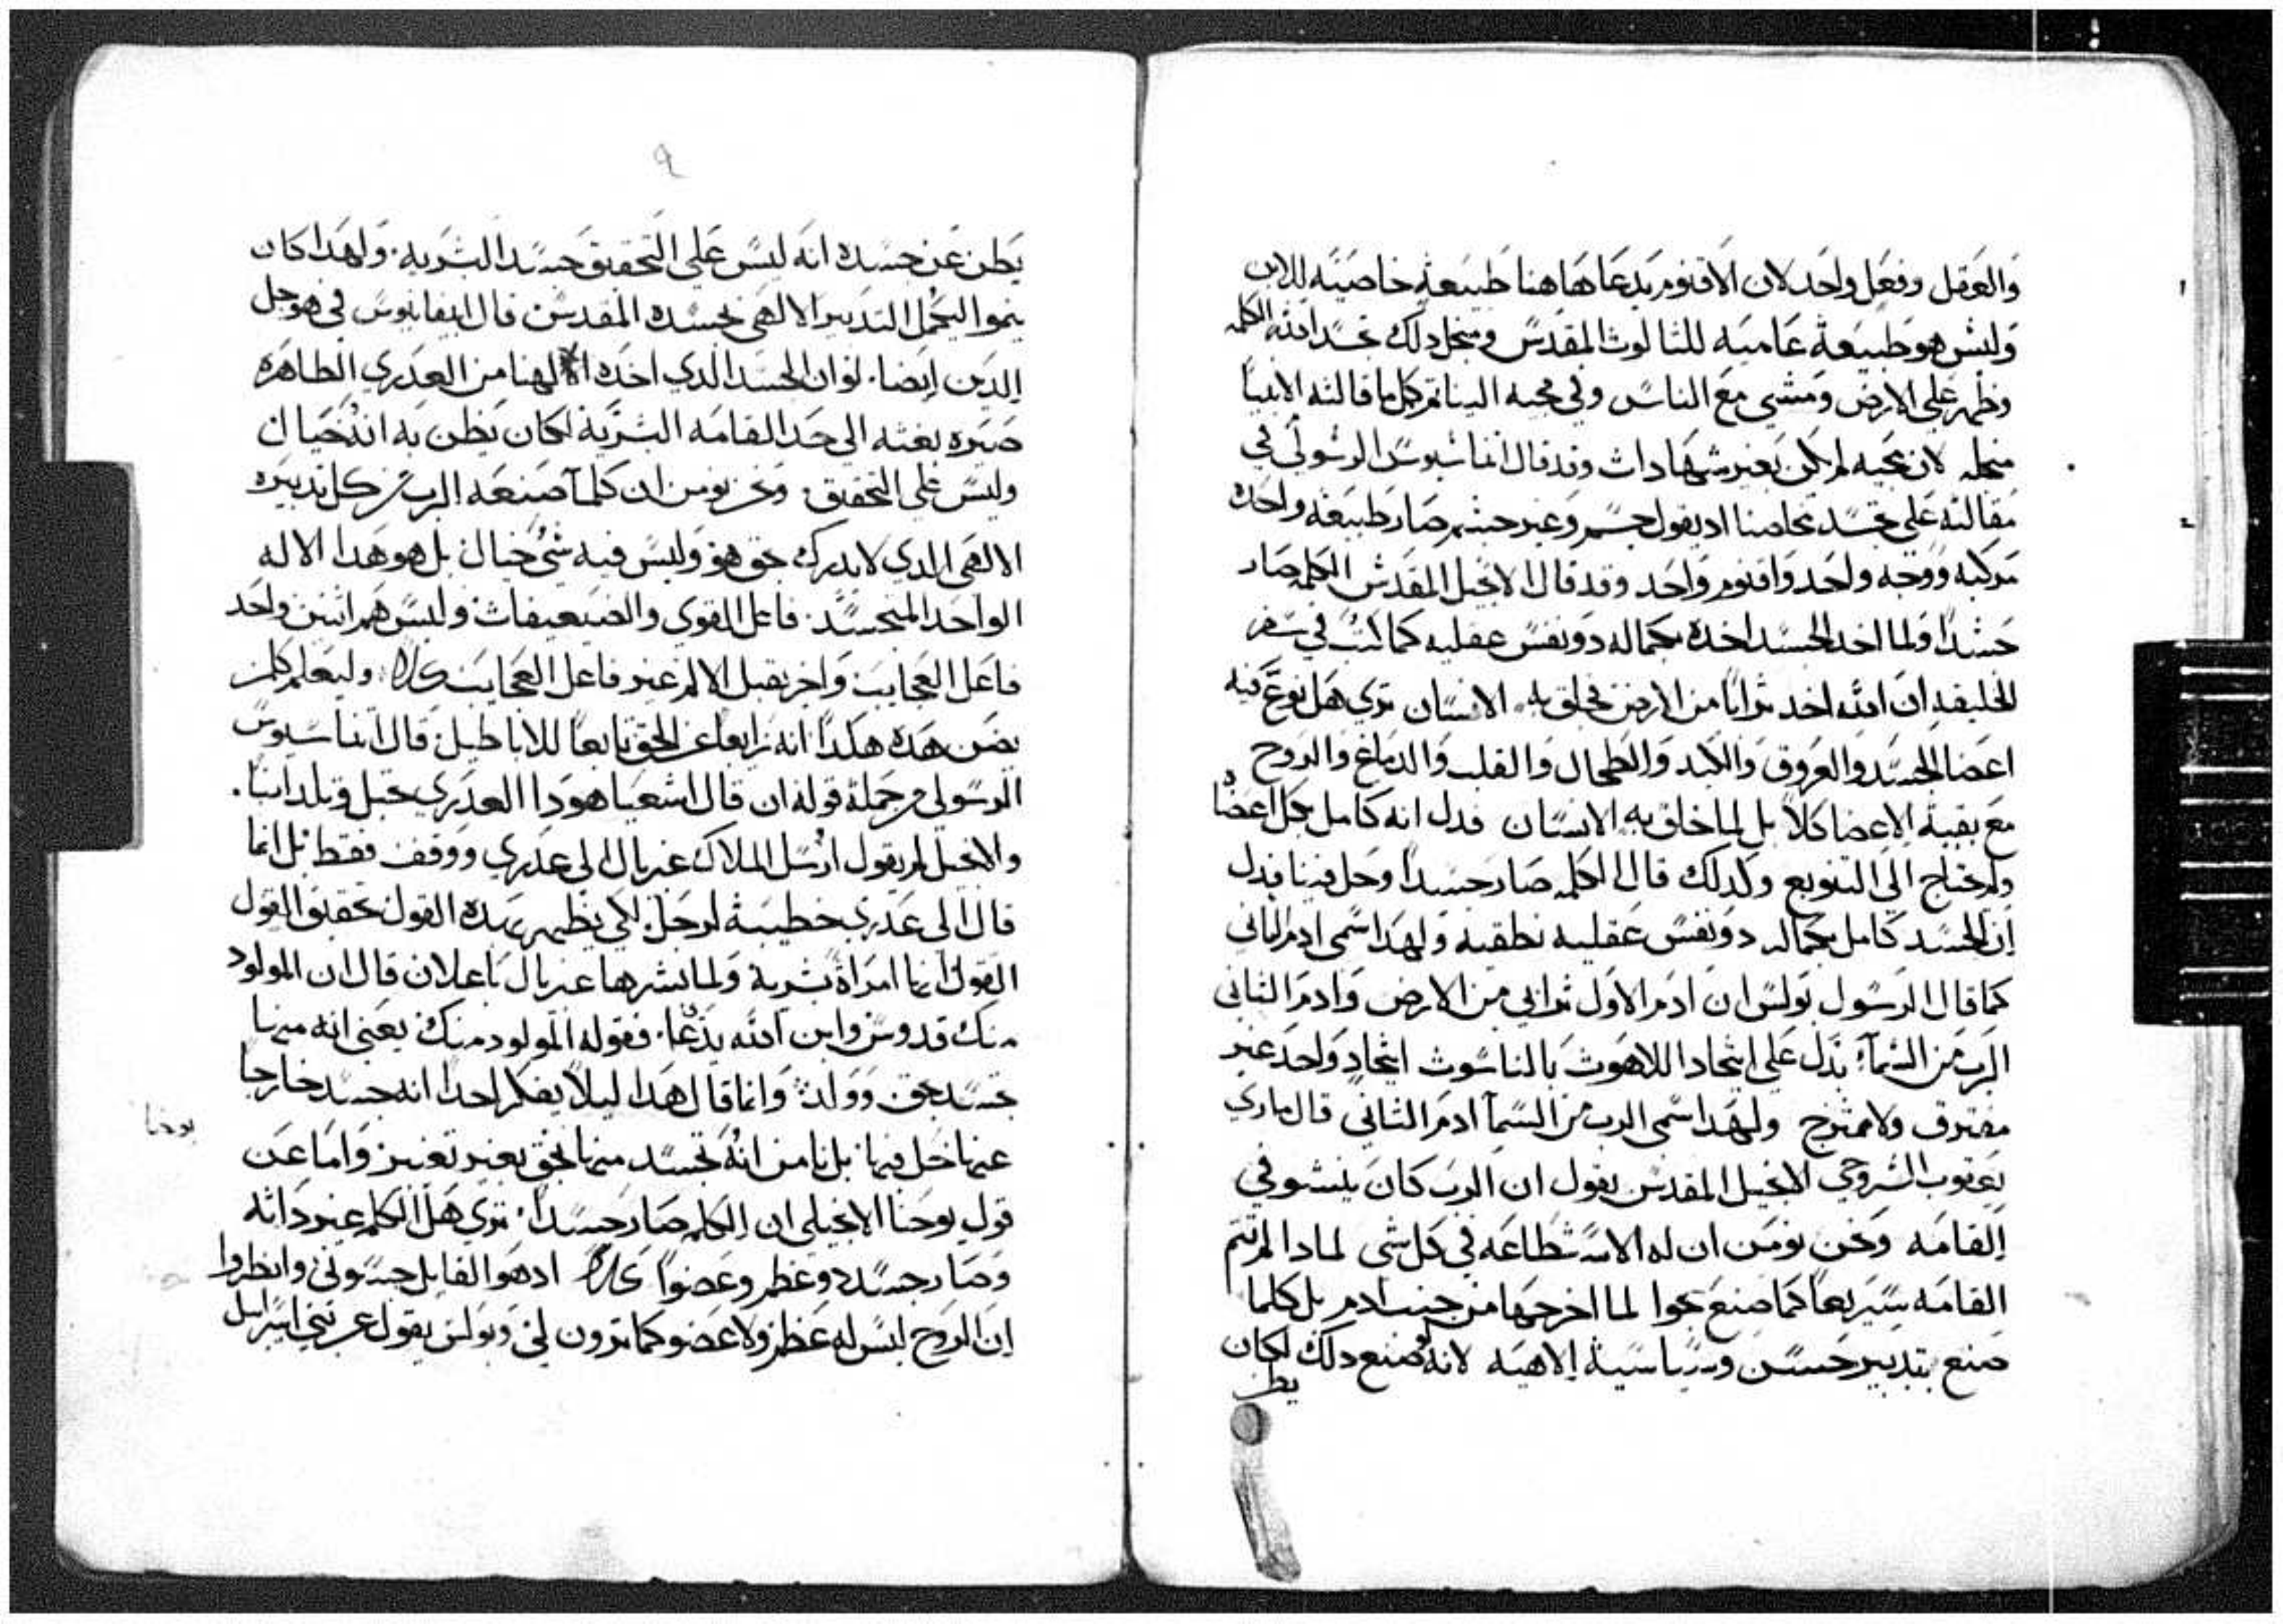 والعقل وفعل واحد لان الاقنوم يدعا هاهنا طبيعة خاصيته للابن
وليس هو طبيعة عاميه للثالوث المقدس ومنجل دلك تجسد الله الكلمه
وظهر علي الارض ومشي مع الناس وفي مجيه الينا تم كل ما قالته الانبيا
منجله لان مجيه لم يكن بغير شهادات وقد قال اتناسيوس الرسولي في
مقالته علي تجسد مخلصنا اد يقول جسم وغير جسم صار طبيعه واحده
مركبه ووجه واحد واقنوم واحد وقد قال الانجيل المقدس الكلمه صار
جسداً ولما اخد الجسد اخده بكماله دو نفس عقليه كما كتب في سفر
الخليقه ان الله اخد تراباً من الارض فخلق به الانسان تري هل نوع فيه
اعضا الجسد والعروق والكبد والطحال والقلب والدماغ والروح
مع بقية الاعضا كلا بل لما خلق به الانسان فدل انه كامل بكل اعضاه
ولم يحتاج الي التنويع وكدلك قال الكلمه صار جسداً وحل فينا فدل
ان الجسد كامل بكماله دو نفس عقليه نطقيه ولهدا سمي ادم الثاني
كما قال الرسول بولس ان ادم الاول ترابي من الارض وادم الثاني
الرب من السمآ يدل علي اتحاد اللاهوت بالناسوت اتحاد واحد غير
مفترق ولا ممتزج ولهدا سمي الرب من السمآ ادم الثاني قال ماري
يعقوب السروجي الانجيل المقدس يقول ان الرب كان ينشو في
القامه ونحن نومن ان له الاستطاعه في كل شي لمادا لم تتم
القامه سريعاً كما صنع بحوا لما اخرجها من جنب ادم بل كلما
صنع بتدبير حسن وسياسية الاهيه لانه لو صنع دلك لكان
يظن
٩
يظن عن جسده انه ليس علي التحقيق جسد البشريه. ولهدا كان
ينموا ليكمل التدبير الالهي بجسده المقدس قال ابيفانيوس في هو جل
الدين ايضا. لو ان الجسد الدي اخده الاهنا من العدري الطاهره
صيره بغته الي حد القامه البشرية لكان يظن به انه خيال
وليس علي التحقيق ونحن نومن ان كلمآ صنعه الرب من كل تدبيره
الالهي الدي لا يدرك حق هو وليس فيه شي خيال بل هو هدا الاله
الواحد المتجسد فاعل القوي والضعيفات وليس هم اتنين واحد
فاعل العجايب واخر يقبل الالم غير فاعل العجايب كلا وليعلم كلمن
يضن هده هكدا انه زايغا عن الحق تابعا للاباطيل قال اتناسيوس
الرسولي من جملة قوله ان قال اشعيا هودا العدري تحبل وتلد ابناً.
والانجيل لم يقول ارسل الملاك غبريال الي عدري ووقف فقط بل انما
قال الي عدري خطيبة لرجل لكي يظهر بهده القول تحقيق القول
القول انها امراة بشرية ولما بشرها غبريال باعلان قال ان المولود
منك قدوس وابن الله يدعا. فقوله المولود منك يعني انه منها
تجسد بحق وولد وانما قال هدا ليلا يفكر احداً انه جسد خارجا
عنها حل فيها بل نامن انه تجسد منها بحق بغير تغيير واما عن
يوحنا
قول يوحنا الانجيلي ان الكلمه صار جسداً. تري هل الكلمه غير داته
وصار جسد دو عظم وعضواً كلا ادهو القايل جسوني وانظروا
ان الروح ليس له عظم ولا عضو كما ترون لي وبولس يقول عن بني اسراييل